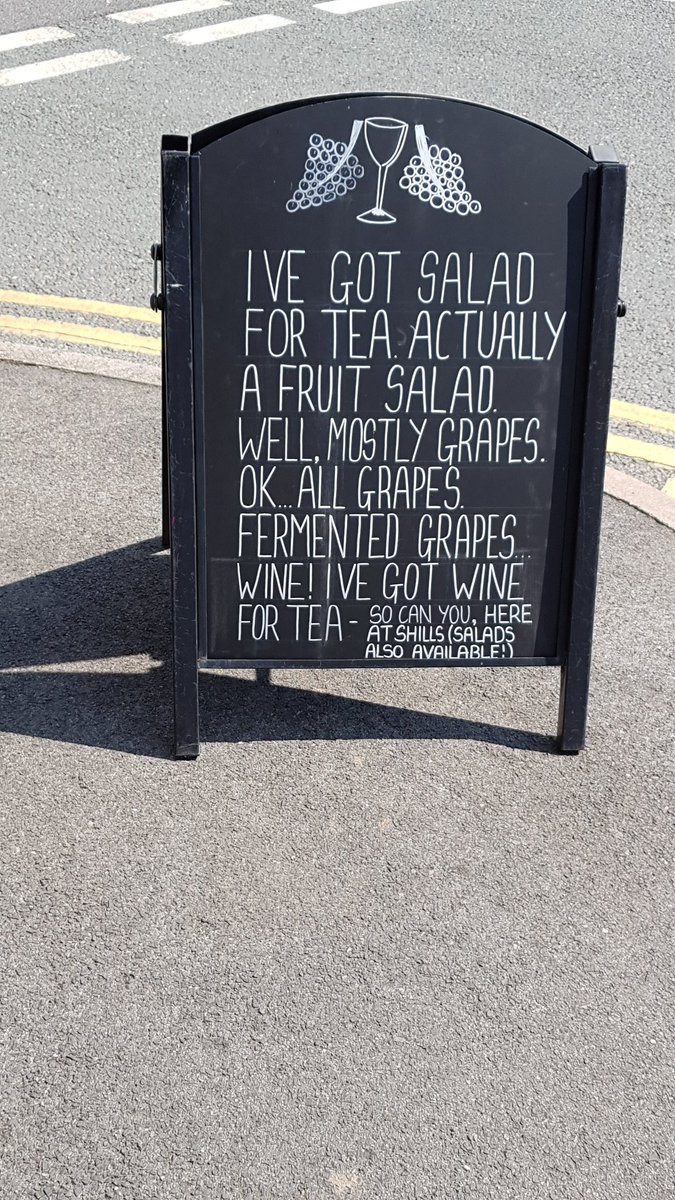 IVE GOT SALAD
FOR TEA. ACTUALLY
A FRUIT SALAD.
WELL, MOSTLY GRAPES.
OK... ALL GRAPES.
FERMENTED GRAPES...
WINE! IVE GOT WINE
FOR TEA - SO CAN YOU, HERE
AT SHILLS (SALADS
ALSO AVAILABLE!)